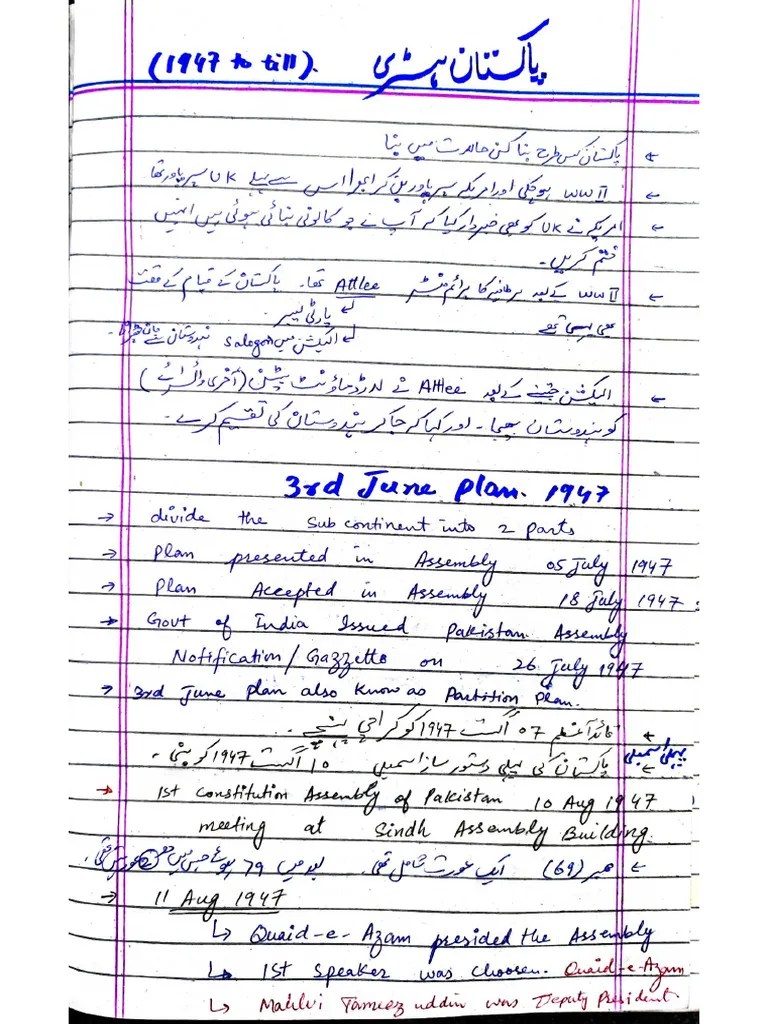 پاکستان ہسٹری (1947 to till).
← پاکستان کس طرح بنا کن حالات میں بنا
← WWII ہوچکی اور امریکہ سپر پاور بن کر ابھرا اس سے پہلے UK سپر پاور تھا
← امریکہ نے UK کو بھی خبردار کیا کہ آپ نے جو کالونی بنائی ہوئی ہیں انہیں
ختم کریں۔
← WWII کے بعد برطانیہ کا پرائم منسٹر Attlee تھا۔ پاکستان کے قیام کے وقت
بھی یہی تھے
پارٹی لیبر
الیکشن میں Salogan ہندوستان سے
← الیکشن جیتنے کے بعد Attlee نے لارڈ ماؤنٹ بیٹن (آخری وائسرائے)
کو ہندوستان بھیجا۔ اور کہا کہ جا کر ہندوستان کی تقسیم کرے۔
3rd June plan. 1947
→ divide the Sub continent into 2 parts
→ Plan presented in Assembly 05 July 1947
→ Plan Accepted in Assembly 18 July 1947
→ Govt of India Issued Pakistan Assembly
Notification/Gazzette on 26 July 1947
→ 3rd June plan also Know as Partition Plan.
← قائداعظم 07 اگست 1947 کو کراچی پہنچے۔
پہلی اسمبلی
← پاکستان کی پہلی دستور ساز اسمبلی 10 اگست 1947 کو بنی۔
→ 1st Constitution Assembly of Pakistan 10 Aug 1947
meeting at Sindh Assembly Building.
← ممبر (69) ایک عورت شامل تھی۔ بعد میں 79 ہوئے جس میں 2 عورتیں تھی۔
→ 11 Aug 1947
↳ Quaid-e-Azam presided the Assembly
↳ 1st Speaker was choosen. Quaid-e-Azam
↳ Tameez uddin was Deputy President.